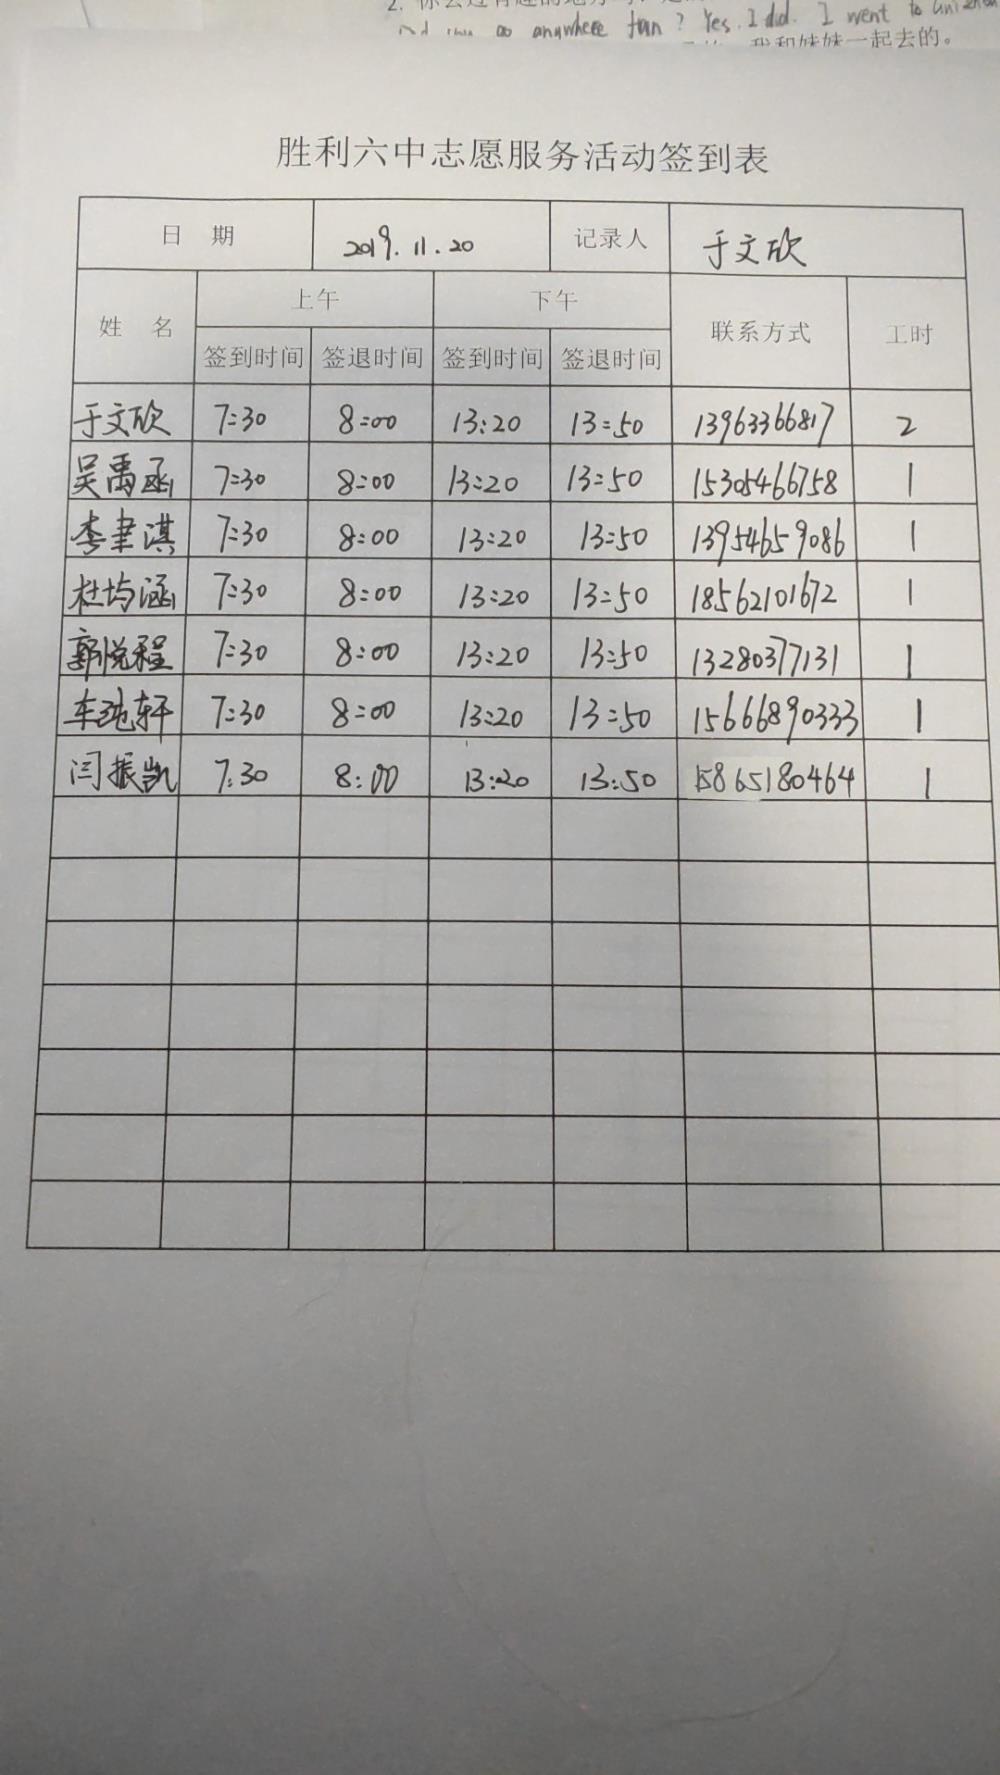 2. 你去过有趣的地方吗?
anywhere fun? Yes. I did. I went to
我和妹妹一起去的。
胜利六中志愿服务活动签到表
日 期 2019.11.20 记录人 于文欣
姓 名 上午 下午 联系方式 工时
签到时间 签退时间 签到时间 签退时间
于文欣 7:30 8:00 13:20 13:50 13963366817 2
吴禹函 7:30 8:00 13:20 13:50 15305466758 1
李聿淇 7:30 8:00 13:20 13:50 13954659086 1
杜均涵 7:30 8:00 13:20 13:50 18562101672 1
郭悦程 7:30 8:00 13:20 13:50 13280377131 1
车纯轩 7:30 8:00 13:20 13:50 15666890333 1
闫振凯 7:30 8:00 13:20 13:50 15865180464 1